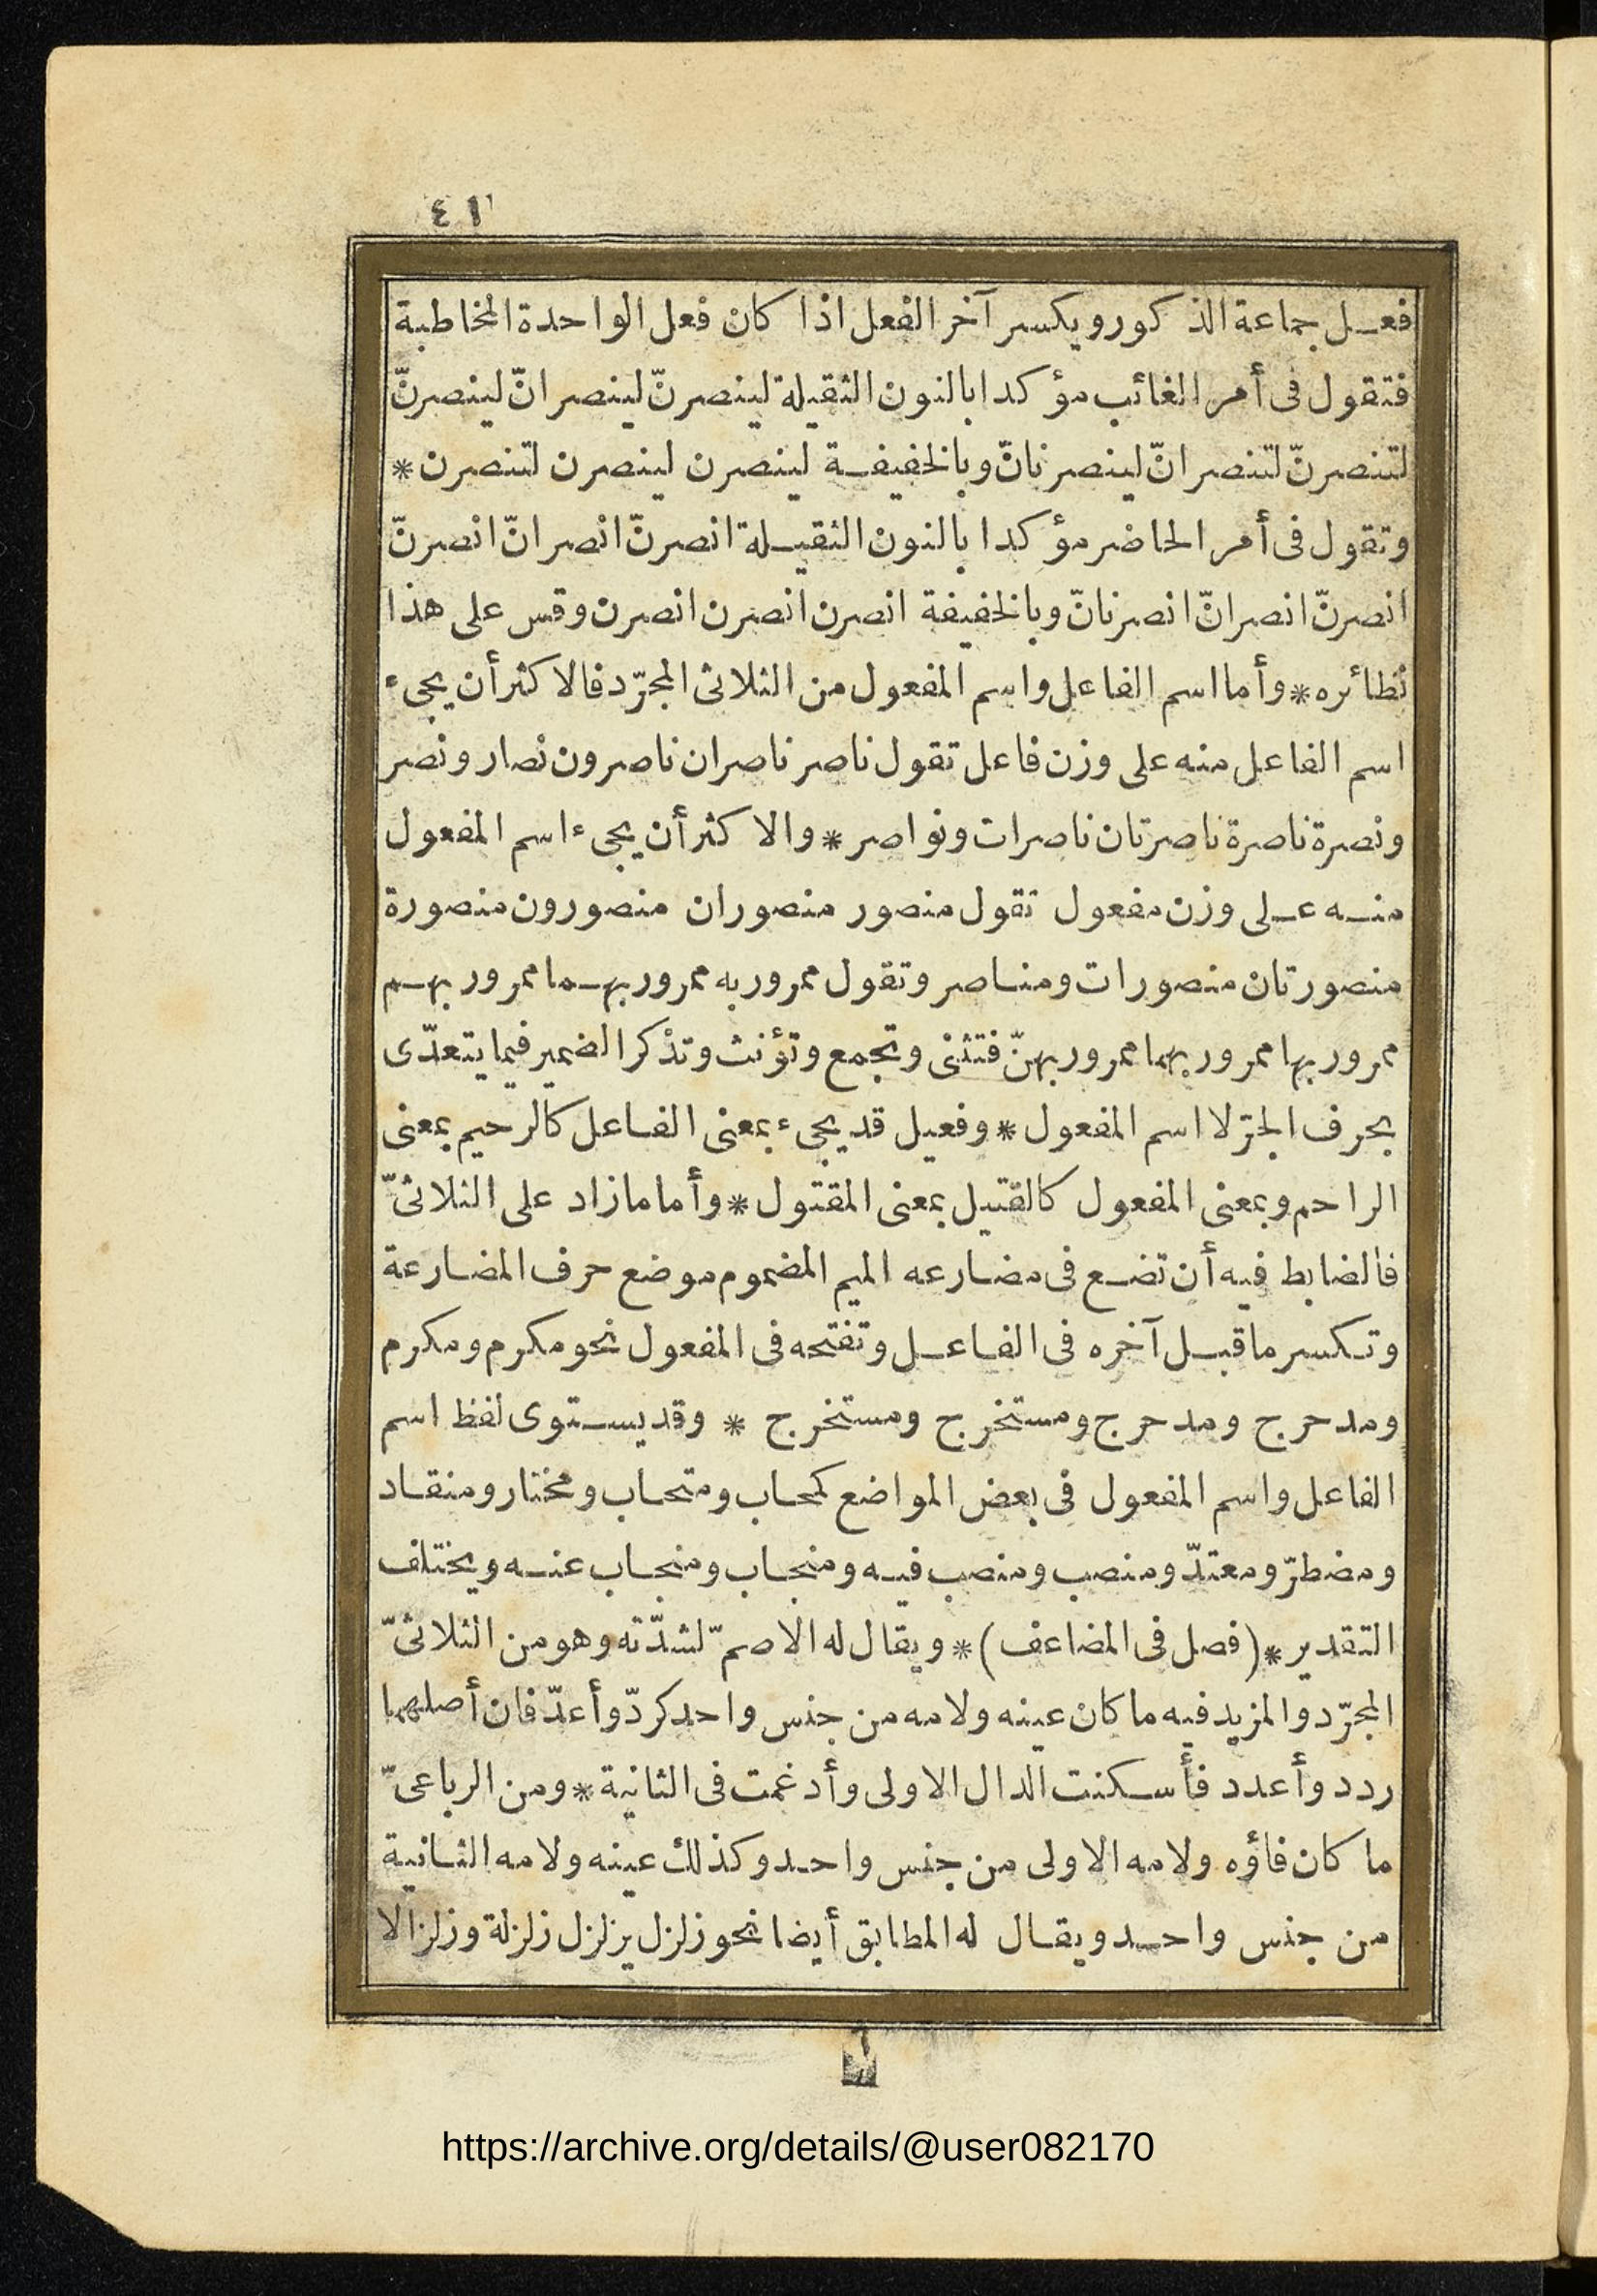 ٤١
فعل جماعة الذكور ويكسر آخر الفعل اذا كان فعل الواحدة المخاطبة
فتقول فى أمر الغائب مؤكدا بالنون الثقيلة لينصرنّ لينصرانّ لينصرنّ
لتنصرنّ لتنصرانّ لينصرنانّ وبالخفيفة لينصرن لينصرن لتنصرن *
وتقول فى أمر الحاضر مؤكدا بالنون الثقيلة انصرنّ انصرانّ انصرنّ
انصرنّ انصرانّ انصرنانّ وبالخفيفة انصرن انصرن انصرن وقس على هذا
نظائره * وأما اسم الفاعل واسم المفعول من الثلاثى المجرّد فالاكثر أن يجىء
اسم الفاعل منه على وزن فاعل تقول ناصر ناصران ناصرون نصار ونصر
ونصرة ناصرة ناصرتان ناصرات ونواصر * والاكثر أن يجىء اسم المفعول
منه على وزن مفعول تقول منصور منصوران منصورون منصورة
منصورتان منصورات ومناصر وتقول ممرور به ممرور بهما ممرور بهم
ممرور بها ممرور بهما ممرور بهنّ فتثنى وتجمع وتؤنث وتذكر الضمير فيما يتعدّى
بحرف الجرّ لا اسم المفعول * وفعيل قد يجىء بمعنى الفاعل كالرحيم بمعنى
الراحم وبمعنى المفعول كالقتيل بمعنى المقتول * وأما مازاد على الثلاثىّ
فالضابط فيه أن تضع فى مضارعه الميم المضموم موضع حرف المضارعة
وتكسر ما قبل آخره فى الفاعل وتفتحه فى المفعول نحو مكرم ومكرم
ومدحرج ومدحرج ومستخرج ومستخرج * وقد يستوى لفظ اسم
الفاعل واسم المفعول فى بعض المواضع كمحاب ومتحاب ومختار ومنقاد
ومضطرّ ومعتدّ ومنصب ومنصب فيه ومنجاب ومنجاب عنه ويختلف
التقدير * (فصل فى المضاعف) * ويقال له الاصمّ لشدّته وهو من الثلاثىّ
المجرّد والمزيد فيه ما كان عينه ولامه من جنس واحد كردّ وأعدّ فان أصلهما
ردد وأعدد فأسكنت الدال الاولى وأدغمت فى الثانية * ومن الرباعىّ
ما كان فاؤه ولامه الاولى من جنس واحد وكذلك عينه ولامه الثانية
من جنس واحد ويقال له المطابق أيضا نحو زلزل يزلزل زلزلة وزلزالا
https://archive.org/details/@user082170